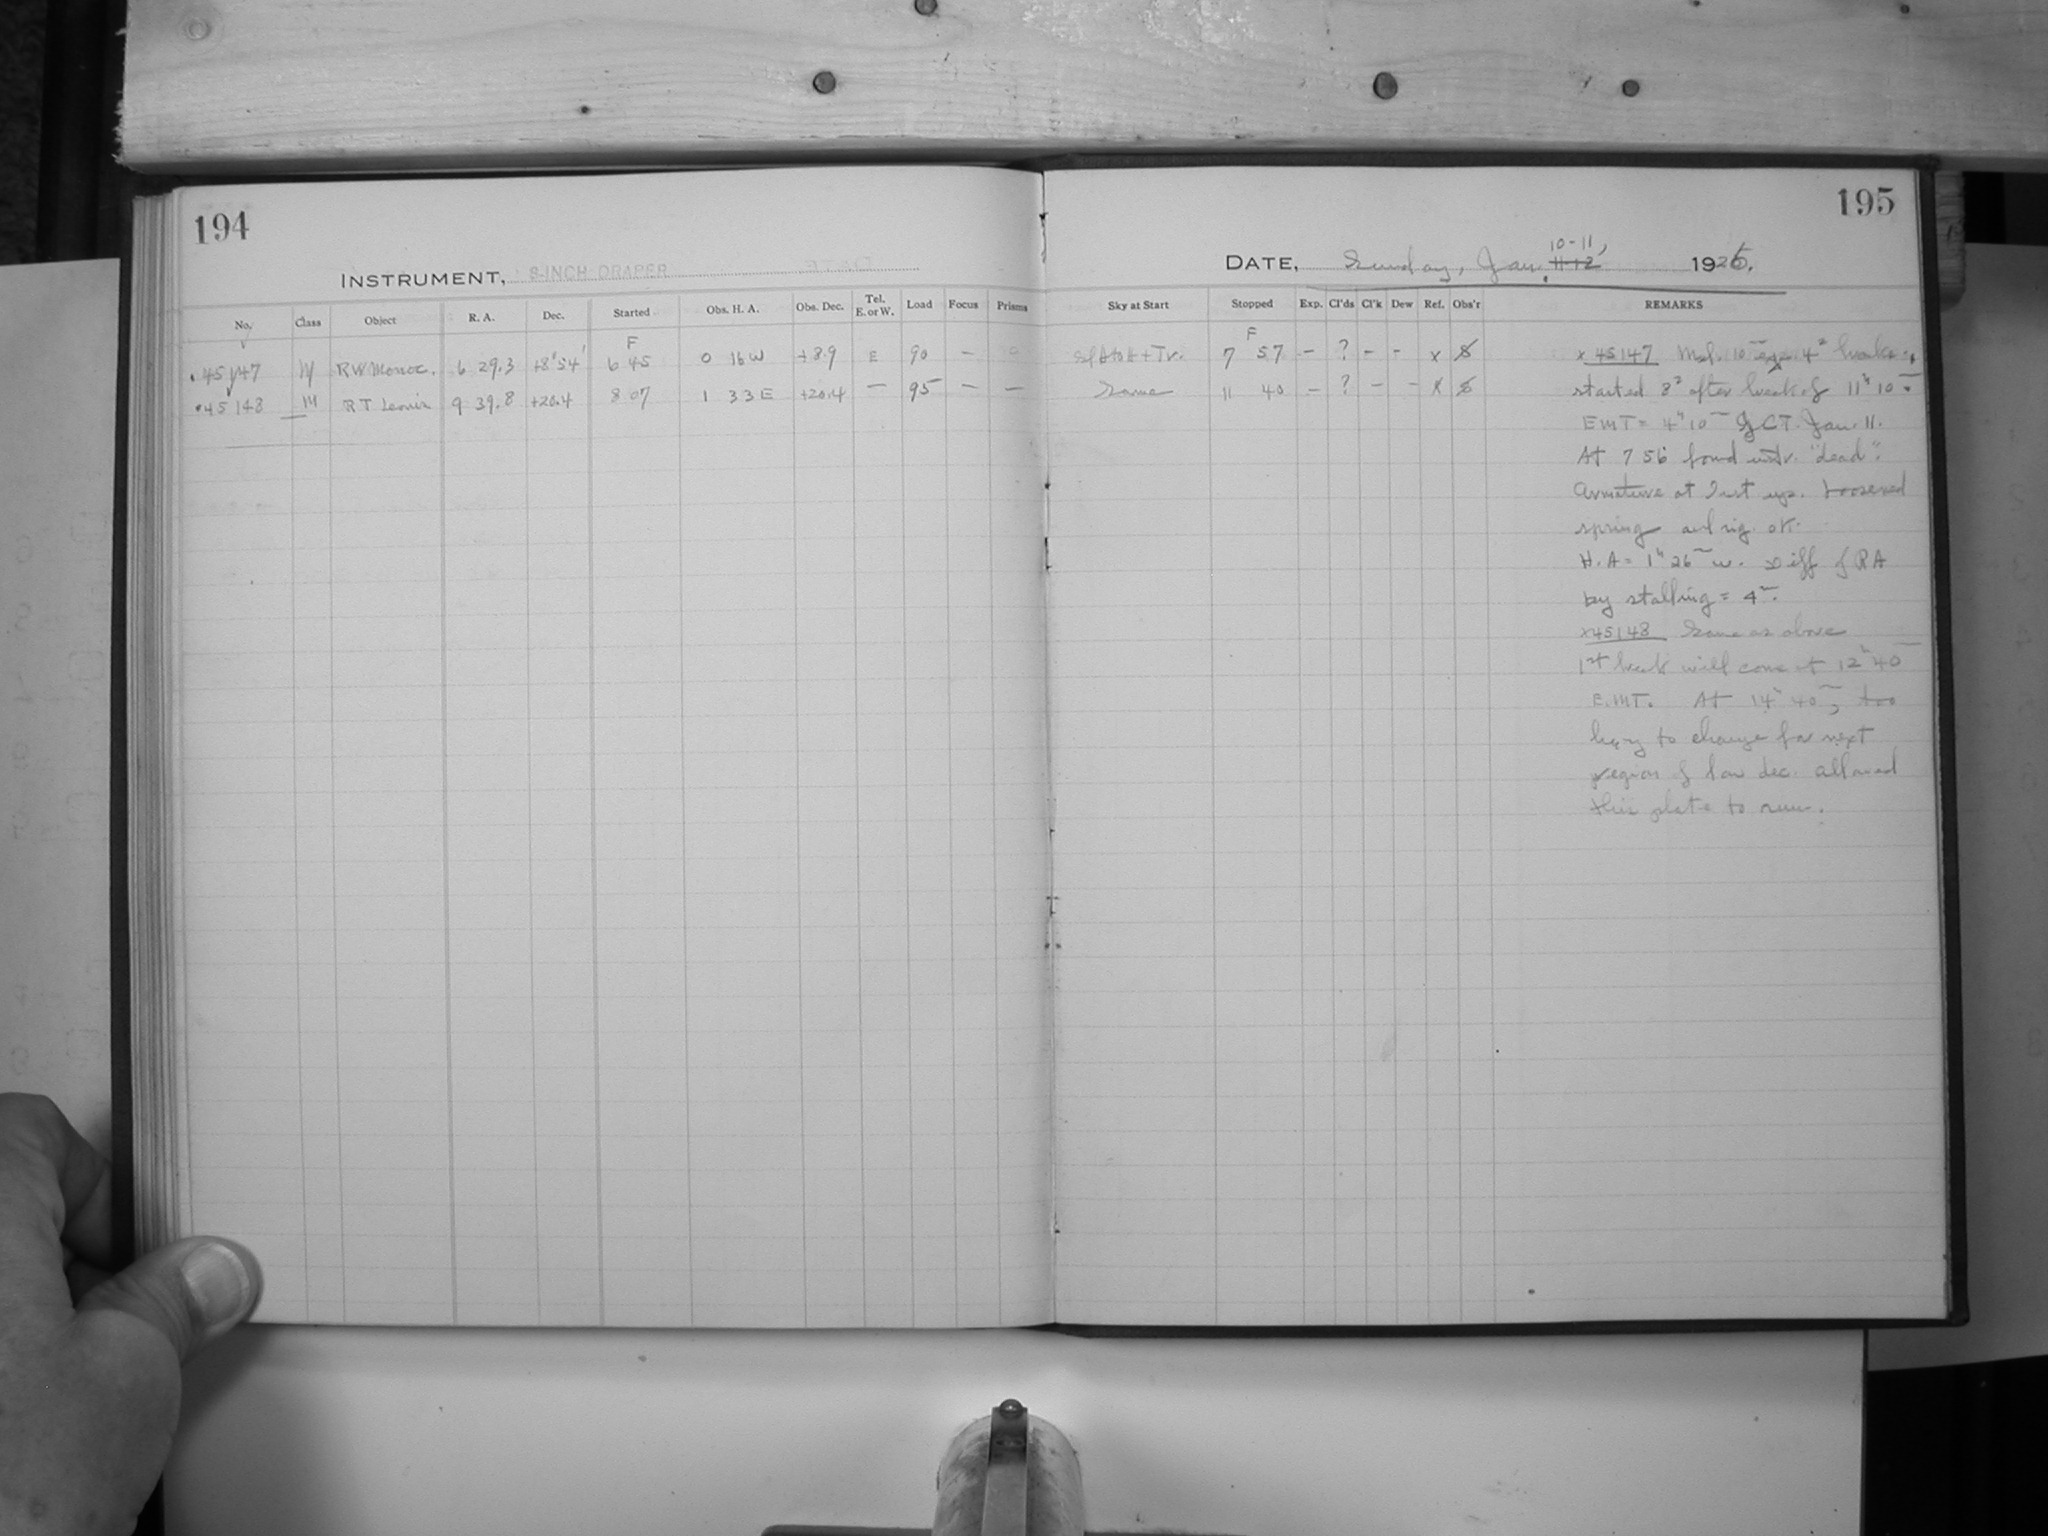 194
INSTRUMENT, 8-INCH DRAPER
No. Class Object R. A. Dec. Started Obs. H. A. Obs. Dec. Tel. E. or W. Load Focus Prisms
F
45147 M RW Monoc. 6 29.3 +8°54' 6 45 0 16 W +8.9 E 90 –
45148 M RT Leonis 9 39.8 +20.4 8 07 1 33 E +20.4 – 95 – –
195
DATE, Sunday, Jan. 11-12 10-11, 1926.
Sky at Start Stopped Exp. Cl'ds Cl'k Dew Ref. Obs'r REMARKS
F
7 57 – ? – – x
Same 11 40 – ? – – x
x 45147 10 4 breaks
started 8 after break of 11 10
EMT = 4h 10m GCT. Jan. 11.
At 7 56 found instr. "dead".
Armature at up. Loosened
spring and rig. OK.
H.A = 1h 26m W. Diff of RA
by stalling = 4m.
x45148 Same as above
1st break will come at 12h 40m
E.MT. At 14h 40m, too
hazy to change for next
region of low dec. allowed
this plate to run.